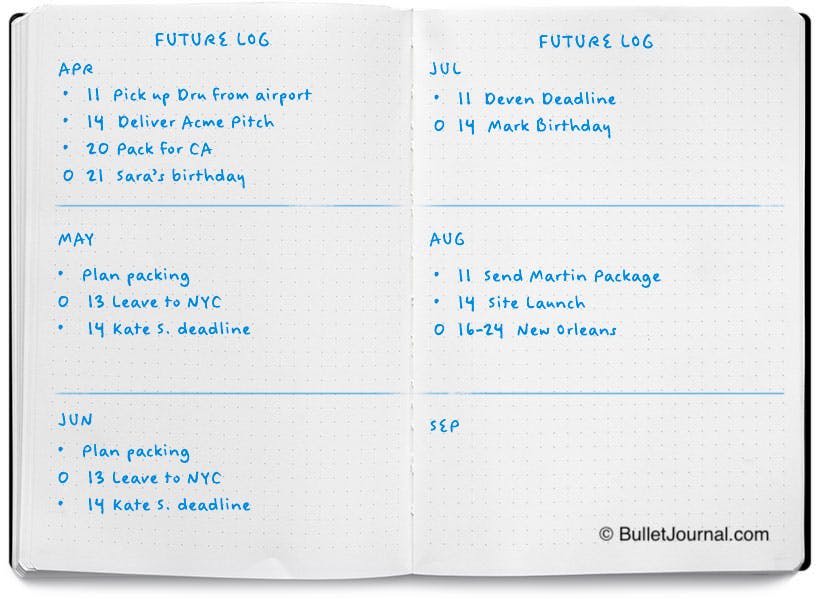 FUTURE LOG
APR
• 11 Pick up Dru from airport
• 14 Deliver Acme Pitch
• 20 Pack for CA
O 21 Sara's birthday
MAY
• Plan packing
O 13 Leave to NYC
• 14 Kate S. deadline
JUN
• Plan packing
O 13 Leave to NYC
• 14 Kate S. deadline
FUTURE LOG
JUL
• 11 Deven Deadline
O 14 Mark Birthday
AUG
• 11 Send Martin Package
• 14 Site Launch
O 16-24 New Orleans
SEP
© BulletJournal.com